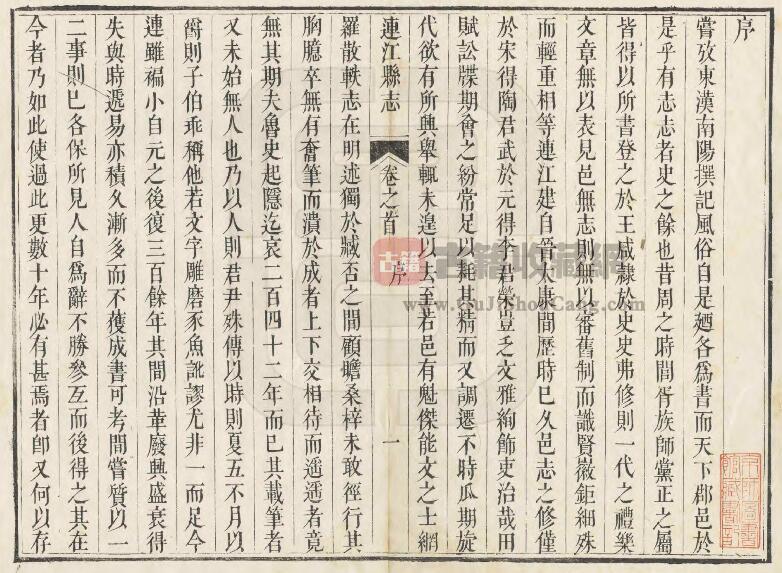 序
嘗攷東漢南陽撰記風俗自是廼各爲書而天下郡邑於
是乎有志志者史之餘也昔周之時閭胥族師黨正之屬
皆得以所書登之於王咸隷於史史弗修則一代之禮樂
文章無以表見邑無志則無以審舊制而識賢徽鉅細殊
而輕重相等連江建自晉太康間歷時已久邑志之修僅
於宋得陶君武於元得李君榮豈乏文雅絢飾吏治哉田
賦訟牒期會之紛常足以耗其精而又調遷不時瓜期旋
代欲有所興舉輒未遑以去至若邑有魁傑能文之士網
連江縣志
卷之首
序
一
羅散軼志在明述獨於臧否之間顧瞻桑梓未敢徑行其
胸臆卒無有奮筆而潰於成者上下交相待而遥遥者竟
無其期夫魯史起隱迄哀二百四十二年而已其載筆者
又未始無人也乃以人則君尹殊傳以時則夏五不月以
爵則子伯乖稱他若文字雕磨豕魚訛謬尤非一而足今
連雖褊小自元之後復三百餘年其間沿革廢興盛衰得
失與時遞易亦積久漸多而不獲成書可考間嘗質以一
二事則已各保所見人自爲辭不勝參互而後得之其在
今者乃如此使過此更數十年必有甚焉者即又何以存
古籍
古籍收藏網
www.GuJiShouCang.com